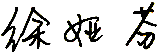 徐娅芬